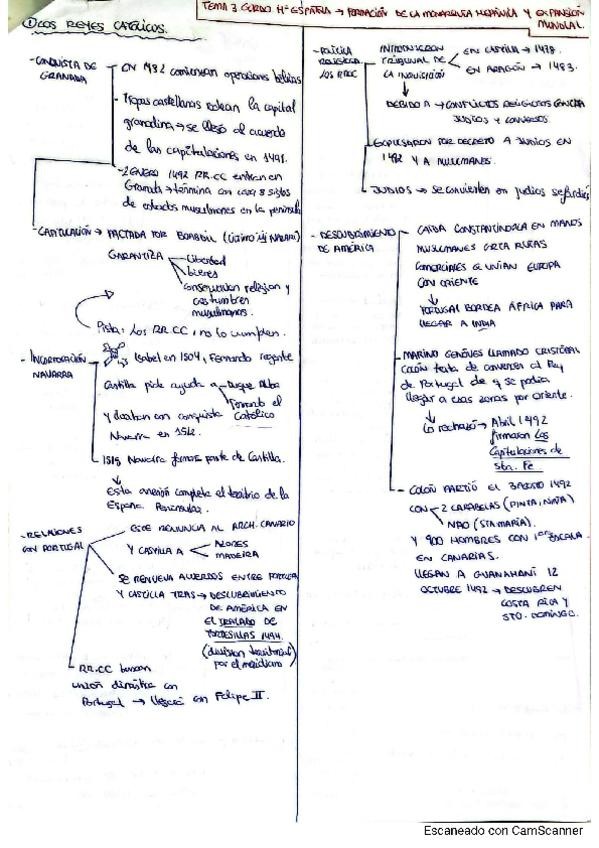 TEMA 3 GUION Hª ESPAÑA → FORMACIÓN DE LA MONARQUÍA HISPÁNICA Y EXPANSIÓN
MUNDIAL.
① LOS REYES CATÓLICOS.
- CONQUISTA DE
GRANADA
EN 1482 comienzan operaciones bélicas
- Tropas castellanas rodean la capital
granadina → se llegó al acuerdo
de las capitulaciones en 1491.
- 2 ENERO 1492 RR.CC entran en
Granada → termina con casi 8 siglos
de estados musulmanes en la península
- CAPITULACIÓN → PACTADA POR BOABDIL (último rey NAZARÍ)
GARANTIZA
Libertad
bienes
conservación religion y
costumbres
musulmanas.
Pista: Los RR.CC, no lo cumplen.
- INCORPORACIÓN
NAVARRA
Isabel en 1504, Fernando regente
Castilla pide ayuda a → Duque Alba
Fernando el
Católico
y acaban con conquista
Navarra en 1512.
1515 Navarra forma parte de Castilla.
Esta anexión completa el territorio de la
España Peninsular.
- RELACIONES
CON PORTUGAL
ESTE RENUNCIA AL ARCH. CANARIO
Y CASTILLA A
AZORES
MADEIRA
SE RENUEVA ACUERDOS ENTRE PORTUGAL
Y CASTILLA TRAS → DESCUBRIMIENTO
DE AMÉRICA EN
EL TRATADO DE
TORDESILLAS 1494.
(división territorial
por el meridiano)
RR.CC buscan
unión dinástica con
Portugal → llegará con Felipe II.
- POLÍTICA
RELIGIOSA
LOS RRCC
INTRODUCERON
TRIBUNAL DE
LA INQUISICIÓN
EN CASTILLA → 1478.
EN ARAGÓN → 1483.
DEBIDO A → CONFLICTOS RELIGIOSOS CONTRA
JUDIOS Y CONVERSOS.
EXPULSARON POR DECRETO A JUDIOS EN
1492 Y A MUSULMANES.
JUDIOS → se convierten en judios sefardíes
- DESCUBRIMIENTO
DE AMÉRICA
CAIDA CONSTANTINOPLA EN MANOS
MUSULMANES CORTA RUTAS
COMERCIALES Q UNIAN EUROPA
CON ORIENTE
PORTUGAL BORDEA ÁFRICA PARA
LLEGAR A INDIA
- MARINO GENOVÉS LLAMADO CRISTÓBAL
COLÓN trata de convencer al Rey
de Portugal de q se podía
llegar a esas zonas por oriente.
Lo rechazó → Abril 1492
firmaron las
Capitulaciones de
Sta. Fe
- COLÓN PARTIÓ EL 3 AGOSTO 1492
CON → 2 CARABELAS (PINTA, NIÑA)
NAO (STA MARÍA).
Y 900 HOMBRES CON 1ª ESCALA
EN CANARIAS.
LLEGAN A GUANAHANÍ 12
OCTUBRE 1492 → DESCUBREN
COSTA RICA Y
STO. DOMINGO.
Escaneado con CamScanner